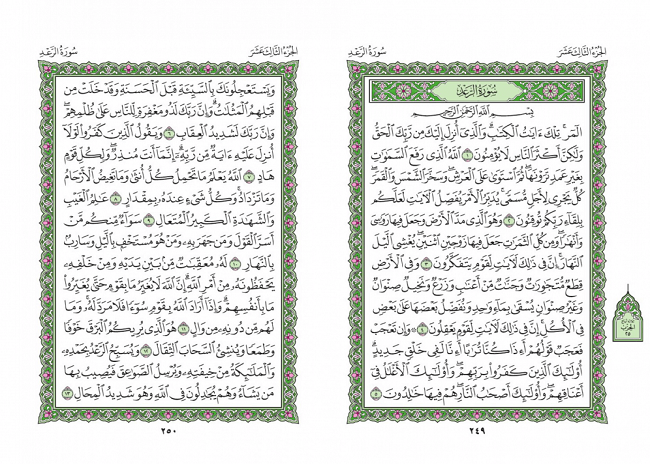 الجزء الثالث عشر
سورة الرعد
سُورَةُ الرَّعْدِ
بِسْمِ اللَّهِ الرَّحْمَٰنِ الرَّحِيمِ
الٓمٓر ۚ تِلْكَ ءَايَٰتُ ٱلْكِتَٰبِ ۗ وَٱلَّذِىٓ أُنزِلَ إِلَيْكَ مِن رَّبِّكَ ٱلْحَقُّ
وَلَٰكِنَّ أَكْثَرَ ٱلنَّاسِ لَا يُؤْمِنُونَ ١ ٱللَّهُ ٱلَّذِى رَفَعَ ٱلسَّمَٰوَٰتِ
بِغَيْرِ عَمَدٍ تَرَوْنَهَا ۖ ثُمَّ ٱسْتَوَىٰ عَلَى ٱلْعَرْشِ ۖ وَسَخَّرَ ٱلشَّمْسَ وَٱلْقَمَرَ ۖ
كُلٌّ يَجْرِى لِأَجَلٍ مُّسَمًّى ۚ يُدَبِّرُ ٱلْأَمْرَ يُفَصِّلُ ٱلْءَايَٰتِ لَعَلَّكُم
بِلِقَآءِ رَبِّكُمْ تُوقِنُونَ ٢ وَهُوَ ٱلَّذِى مَدَّ ٱلْأَرْضَ وَجَعَلَ فِيهَا رَوَٰسِىَ
وَأَنْهَٰرًا ۖ وَمِن كُلِّ ٱلثَّمَرَٰتِ جَعَلَ فِيهَا زَوْجَيْنِ ٱثْنَيْنِ ۖ يُغْشِى ٱلَّيْلَ
ٱلنَّهَارَ ۚ إِنَّ فِى ذَٰلِكَ لَءَايَٰتٍ لِّقَوْمٍ يَتَفَكَّرُونَ ٣ وَفِى ٱلْأَرْضِ
قِطَعٌ مُّتَجَٰوِرَٰتٌ وَجَنَّٰتٌ مِّنْ أَعْنَٰبٍ وَزَرْعٌ وَنَخِيلٌ صِنْوَانٌ
وَغَيْرُ صِنْوَانٍ يُسْقَىٰ بِمَآءٍ وَٰحِدٍ وَنُفَضِّلُ بَعْضَهَا عَلَىٰ بَعْضٍ
فِى ٱلْأُكُلِ ۚ إِنَّ فِى ذَٰلِكَ لَءَايَٰتٍ لِّقَوْمٍ يَعْقِلُونَ ٤ ۞ وَإِن تَعْجَبْ
فَعَجَبٌ قَوْلُهُمْ أَءِذَا كُنَّا تُرَٰبًا أَءِنَّا لَفِى خَلْقٍ جَدِيدٍ ۗ
أُو۟لَٰٓئِكَ ٱلَّذِينَ كَفَرُوا۟ بِرَبِّهِمْ ۖ وَأُو۟لَٰٓئِكَ ٱلْأَغْلَٰلُ فِىٓ
أَعْنَاقِهِمْ ۖ وَأُو۟لَٰٓئِكَ أَصْحَٰبُ ٱلنَّارِ ۖ هُمْ فِيهَا خَٰلِدُونَ ٥
٢٤٩
الحزب
٢٥
الجزء الثالث عشر
سورة الرعد
وَيَسْتَعْجِلُونَكَ بِٱلسَّيِّئَةِ قَبْلَ ٱلْحَسَنَةِ وَقَدْ خَلَتْ مِن
قَبْلِهِمُ ٱلْمَثُلَٰتُ ۗ وَإِنَّ رَبَّكَ لَذُو مَغْفِرَةٍ لِّلنَّاسِ عَلَىٰ ظُلْمِهِمْ ۖ
وَإِنَّ رَبَّكَ لَشَدِيدُ ٱلْعِقَابِ ٦ وَيَقُولُ ٱلَّذِينَ كَفَرُوا۟ لَوْلَآ
أُنزِلَ عَلَيْهِ ءَايَةٌ مِّن رَّبِّهِۦٓ ۗ إِنَّمَآ أَنتَ مُنذِرٌ ۖ وَلِكُلِّ قَوْمٍ
هَادٍ ٧ ٱللَّهُ يَعْلَمُ مَا تَحْمِلُ كُلُّ أُنثَىٰ وَمَا تَغِيضُ ٱلْأَرْحَامُ
وَمَا تَزْدَادُ ۖ وَكُلُّ شَىْءٍ عِندَهُۥ بِمِقْدَارٍ ٨ عَٰلِمُ ٱلْغَيْبِ
وَٱلشَّهَٰدَةِ ٱلْكَبِيرُ ٱلْمُتَعَالِ ٩ سَوَآءٌ مِّنكُم مَّنْ
أَسَرَّ ٱلْقَوْلَ وَمَن جَهَرَ بِهِۦ وَمَنْ هُوَ مُسْتَخْفٍۭ بِٱلَّيْلِ وَسَارِبٌۢ
بِٱلنَّهَارِ ١٠ لَهُۥ مُعَقِّبَٰتٌ مِّنۢ بَيْنِ يَدَيْهِ وَمِنْ خَلْفِهِۦ
يَحْفَظُونَهُۥ مِنْ أَمْرِ ٱللَّهِ ۗ إِنَّ ٱللَّهَ لَا يُغَيِّرُ مَا بِقَوْمٍ حَتَّىٰ يُغَيِّرُوا۟
مَا بِأَنفُسِهِمْ ۗ وَإِذَآ أَرَادَ ٱللَّهُ بِقَوْمٍ سُوٓءًا فَلَا مَرَدَّ لَهُۥ ۚ وَمَا
لَهُم مِّن دُونِهِۦ مِن وَالٍ ١١ هُوَ ٱلَّذِى يُرِيكُمُ ٱلْبَرْقَ خَوْفًا
وَطَمَعًا وَيُنشِئُ ٱلسَّحَابَ ٱلثِّقَالَ ١٢ وَيُسَبِّحُ ٱلرَّعْدُ بِحَمْدِهِۦ
وَٱلْمَلَٰٓئِكَةُ مِنْ خِيفَتِهِۦ وَيُرْسِلُ ٱلصَّوَٰعِقَ فَيُصِيبُ بِهَا
مَن يَشَآءُ وَهُمْ يُجَٰدِلُونَ فِى ٱللَّهِ وَهُوَ شَدِيدُ ٱلْمِحَالِ ١٣
٢٥٠